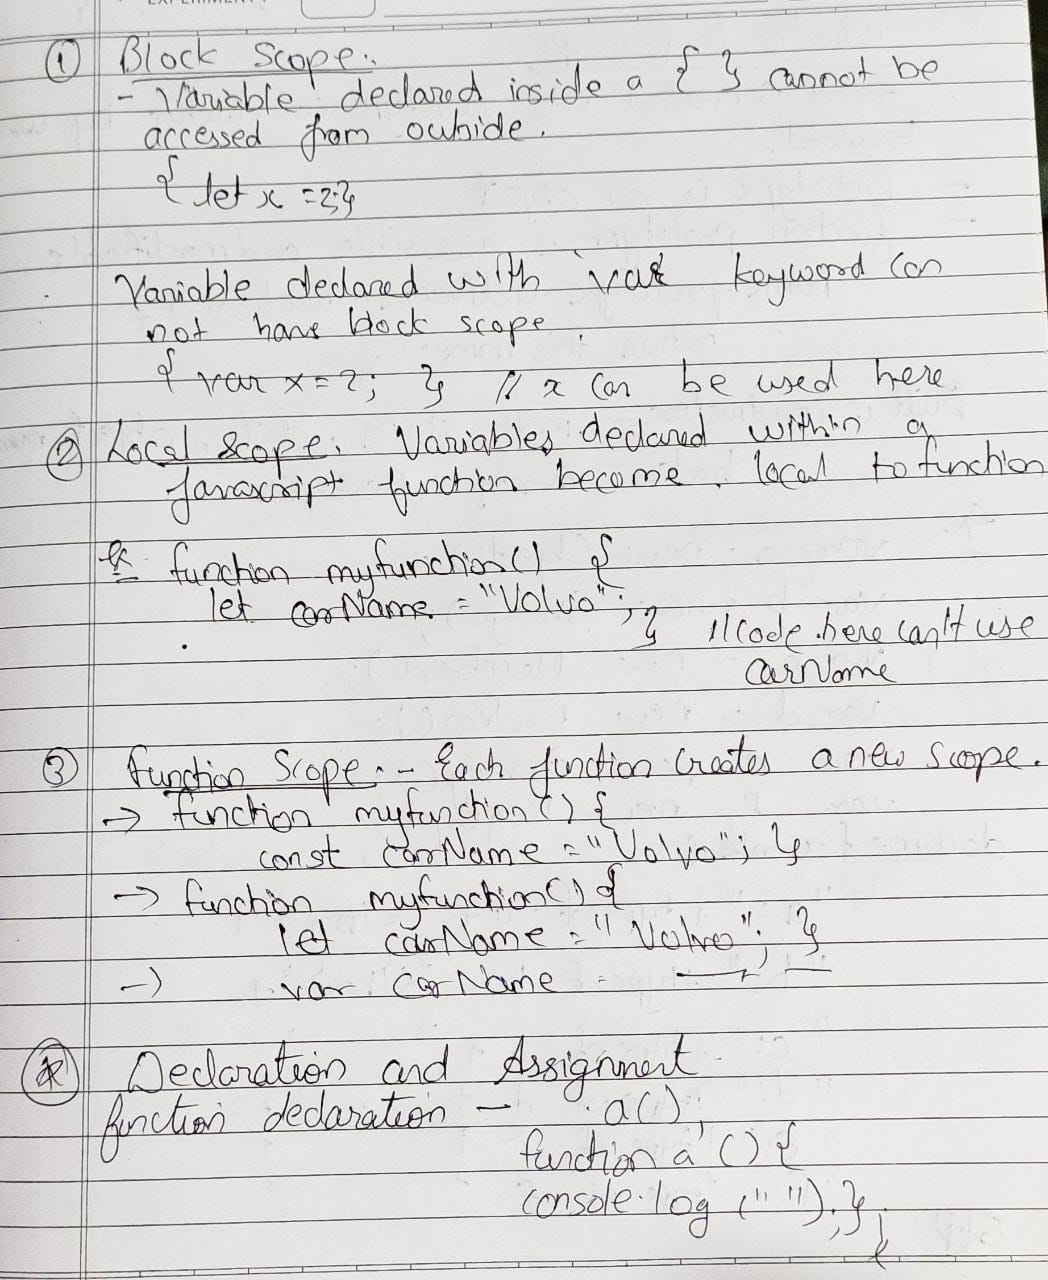 ① Block Scope:
- Variable declared inside a { } cannot be
accessed from outside.
{ let x = 2;}
Variable declared with var keyword can
not have block scope.
{ var x = 2; } // x can be used here
② Local Scope: Variables declared within a
Javascript function become local to function
Ex function myfunction() {
let carName = "Volvo"; } // code here can't use
carName
③ Function Scope :- Each function creates a new scope.
→ function myfunction() {
const carName = "Volvo"; }
→ function myfunction() {
let carName = "Volvo"; }
→ var carName =
* Declaration and Assignment
function declaration - a();
function a () {
console.log (" "); }